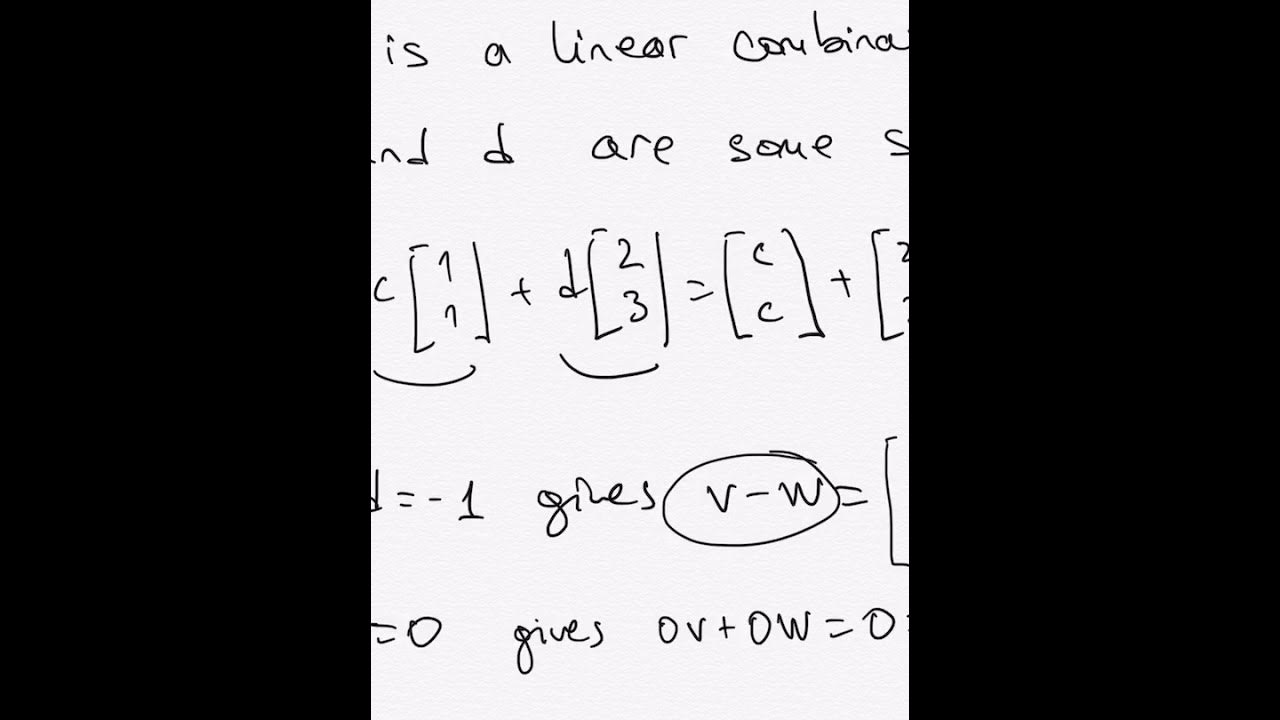 is a linear combina
nd d are some s
c [1 1] + d [2 3] = [c c] + [2
d = -1 gives v - w = [
= 0 gives 0v + 0w = 0